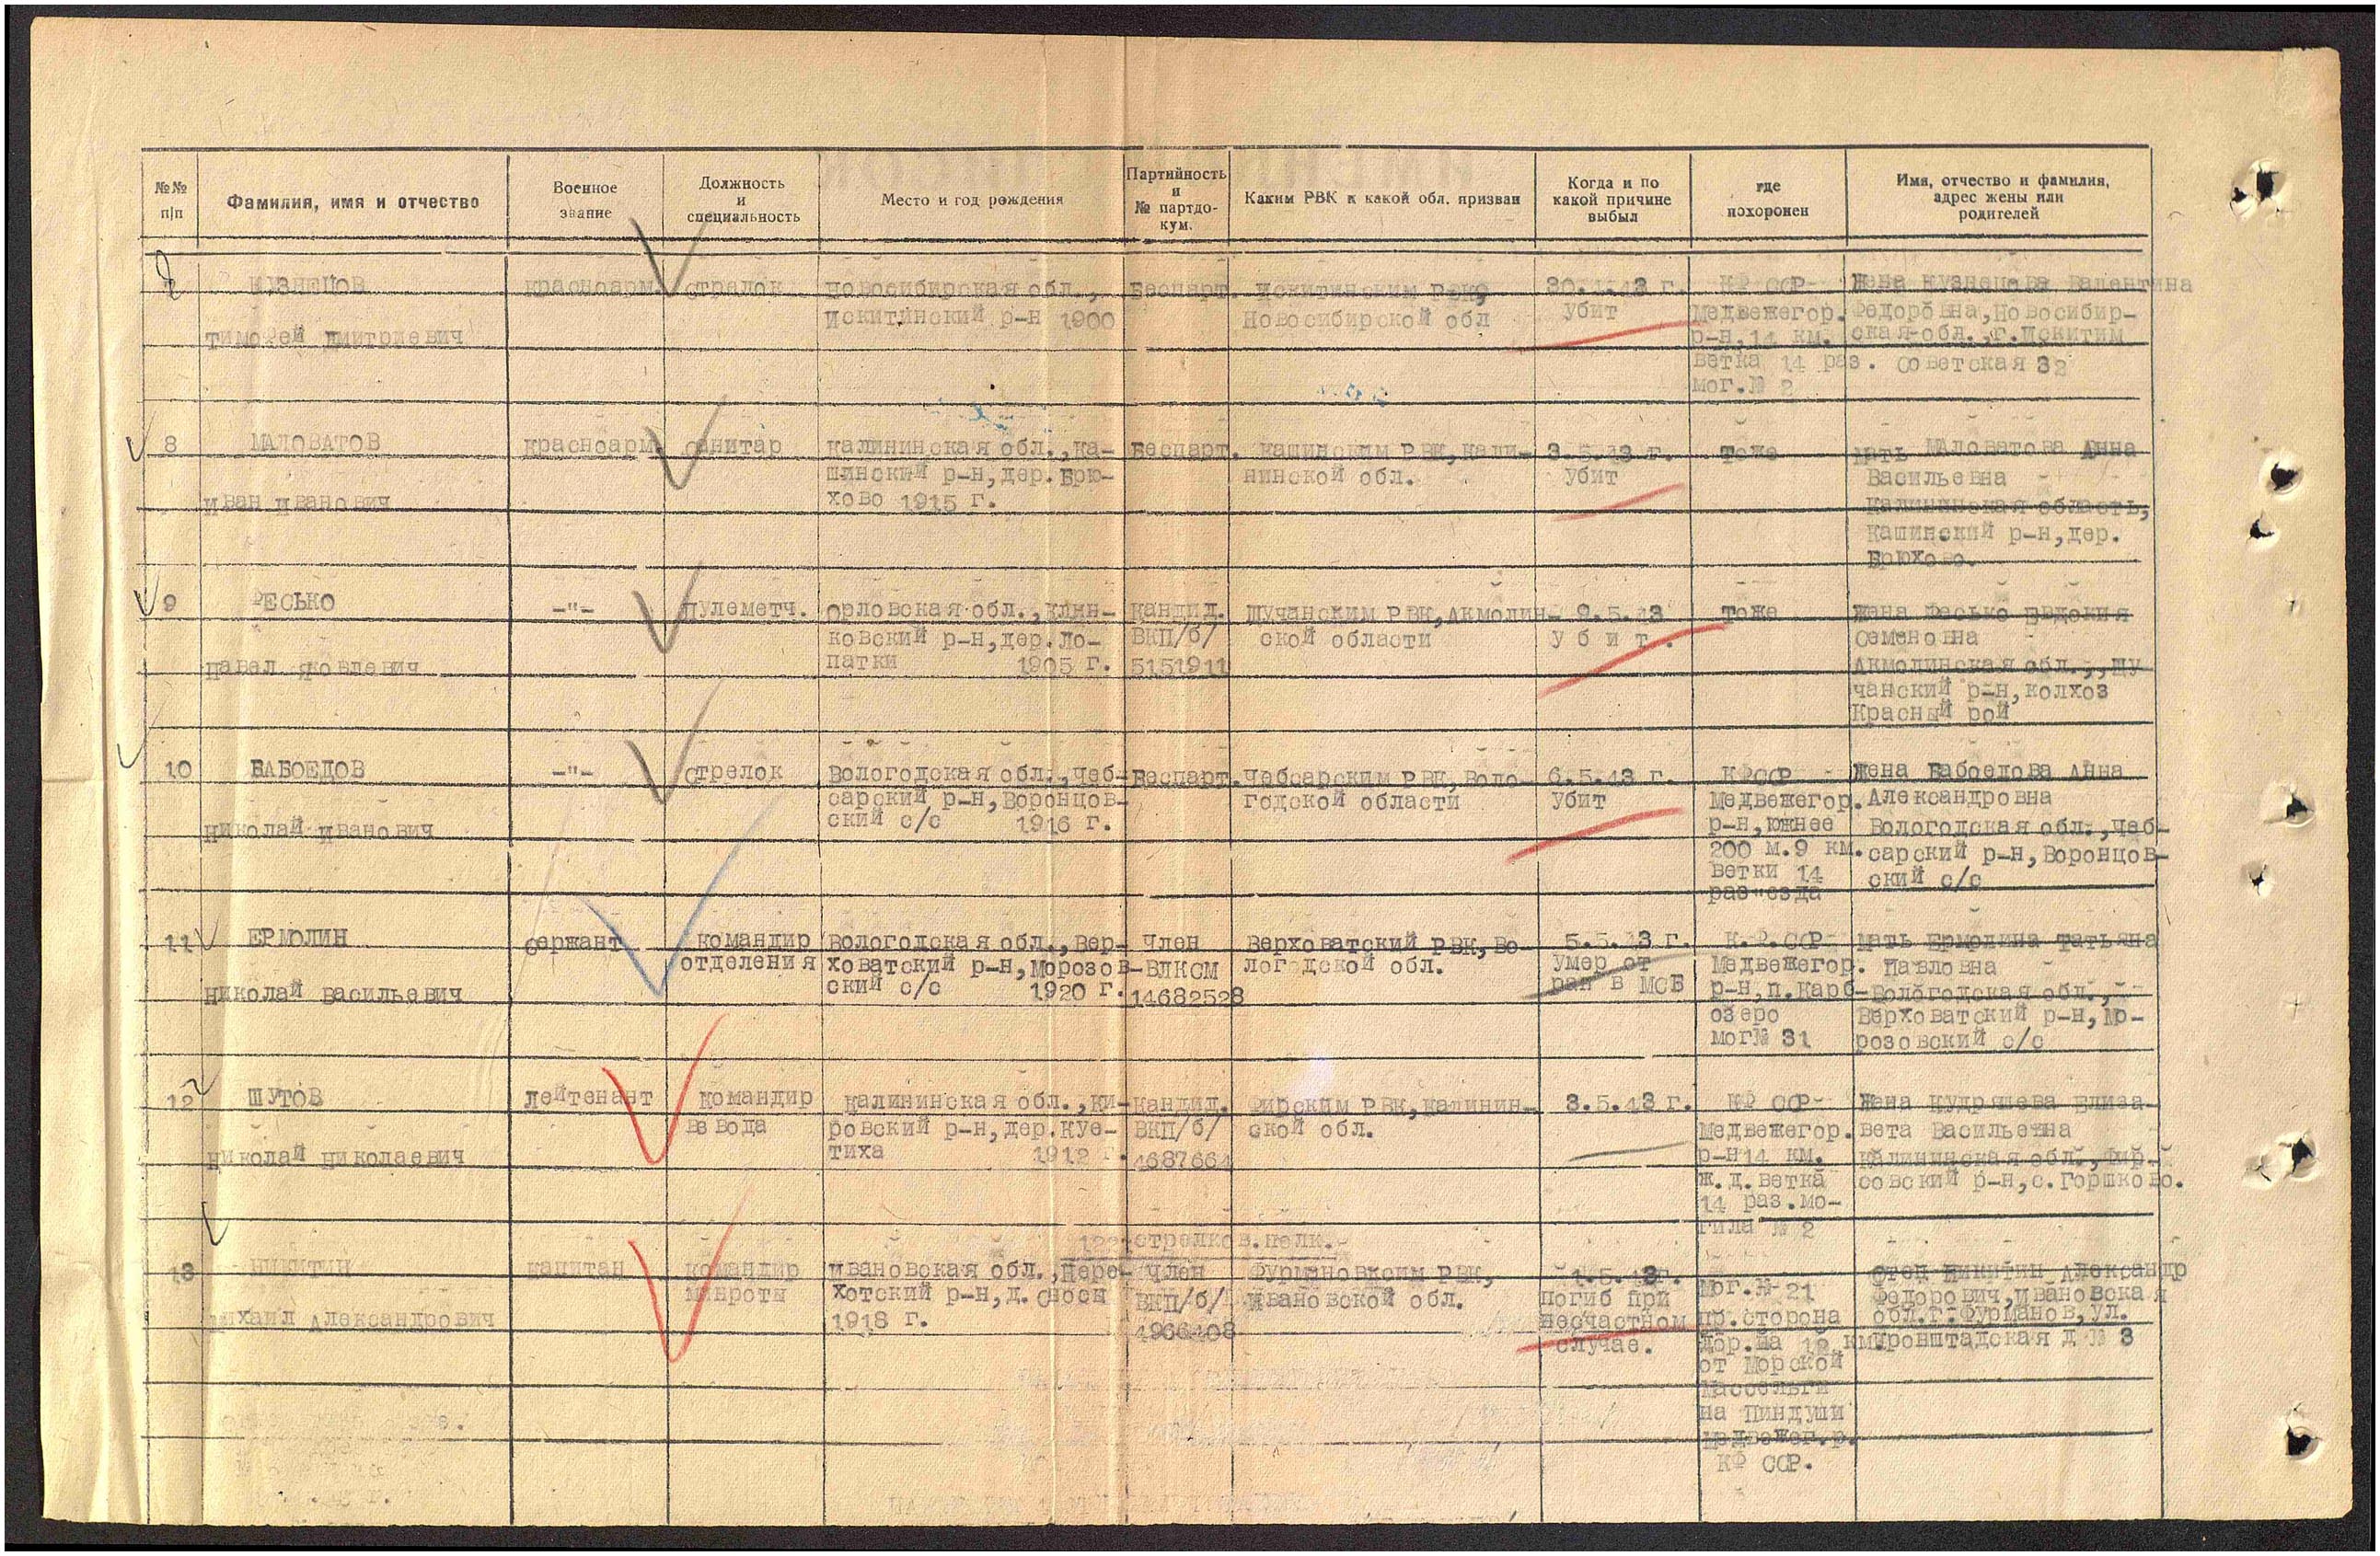 №№ п/п
Фамилия, имя и отчество
Военное звание
Должность и специальность
Место и год рождения
Партийность и № партдокум.
Каким РВК и какой обл. призван
Когда и по какой причине выбыл
где похоронен
Имя, отчество и фамилия, адрес жены или родителей
КУЗНЕЦОВ
Тимофей Дмитриевич
красноарм.
стрелок
Новосибирская обл.,
Искитимский р-н 1900
Беспарт.
Искитимским РВК,
Новосибирской обл
30.4.43 г.
убит
КФ ССР
Медвежегор.
р-н, 14 км.
ветка 14 раз.
мог.№ 2
Жена Кузнецова Валентина
Федоровна, Новосибир-
ская обл., г.Искитим
Советская 32
8
МАЛОВАТОВ
Иван Иванович
красноарм.
санитар
Калининская обл., Ка-
шинский р-н, дер. Брю-
хово 1915 г.
Беспарт.
Кашинским РВК, Кали-
нинской обл.
3.5.43 г.
убит
Тоже
Мать Маловатова Анна
Васильевна
Калининская область,
Кашинский р-н, дер.
Брюхово.
9
ФЕСЬКО
Павел Яковлевич
-"-
пулеметч.
Орловская обл., Клин-
ковский р-н, дер. Ло-
патки 1905 г.
Кандид.
ВКП/б/
5151911
Щучанским РВК, Акмолин-
ской области
2.5.43
у б и т.
Тоже
Жена Фесько Евдокия
Семеновна
Акмолинская обл.,, Щу
чанский р-н, колхоз
Красный рой
10
БАБОЕДОВ
Николай Иванович
-"-
стрелок
Вологодская обл., Чеб-
сарский р-н, Воронцов-
ский с/с 1916 г.
Беспарт.
Чебсарским РВК, Воло-
годской области
6.5.43 г.
убит
КФССР
Медвежегор.
р-н, южнее
200 м.9 км.
ветки 14
раз"езда
Жена Бабоедова Анна
Александровна
Вологодская обл., Чеб-
сарский р-н, Воронцов-
ский с/с
11
ЕРМОЛИН
Николай Васильевич
сержант
командир
отделения
Вологодская обл., Вер-
ховатский р-н, Морозов-
ский с/с 1920 г.
Член
ВЛКСМ
14682528
Верховатский РВК, Во-
логодской обл.
5.5.43 г.
умер от
ран в МСБ
К.Ф.ССР
Медвежегор.
р-н, п.Карб-
озеро
мог№ 31
Мать Ермолина Татьяна
Павловна
Вологодская обл.,
Верховатский р-н, Мо-
розовский с/с
12
ШУТОВ
Николай Николаевич
лейтенант
командир
взвода
Калининская обл., Ки-
ровский р-н, дер. Куе-
тиха 1912 г.
Кандид.
ВКП/б/
4687664
Фирским РВК, Калинин-
ской обл.
3.5.43 г.
КФ ССР
Медвежегор.
р-н14 км.
ж.д.ветка
14 раз.мо-
гила № 2
Жена Кудряшева Елиза-
вета Васильевна
Калининская обл., Фир-
совский р-н, с.Горшково.
стрелков. полк.
13
НИКИТИН
Михаил Александрович
капитан
командир
минроты
Ивановская обл., Пере-
хотский р-н, д. Сносы
1918 г.
Член
ВКП/б/
4966408
Фурмановским РВК,
Ивановской обл.
1.5.43г.
погиб при
несчастном
случае.
Мог.№ 21
пр.сторона
дор. на 12 км
от Морской
Массельги
на Пиндуши
Медвежег.р.
КФ ССР.
Отец Никитин Александр
Федорович, Ивановская
обл.г.Фурманов, ул.
Кронштадская д № 3